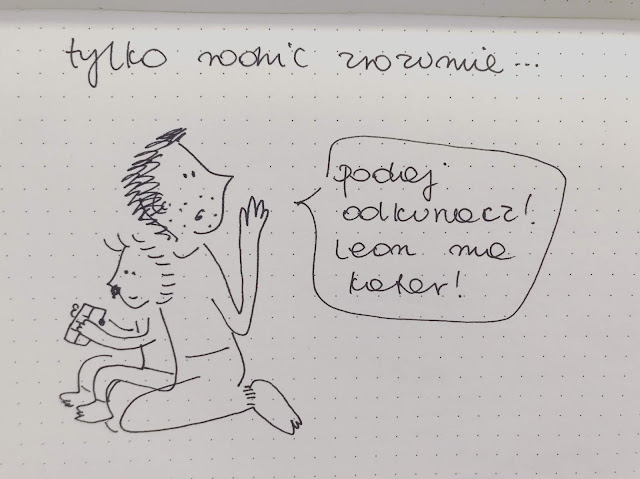 tylko rodzic zrozumie...
podaj
odkurzacz!
Leon ma
katar!